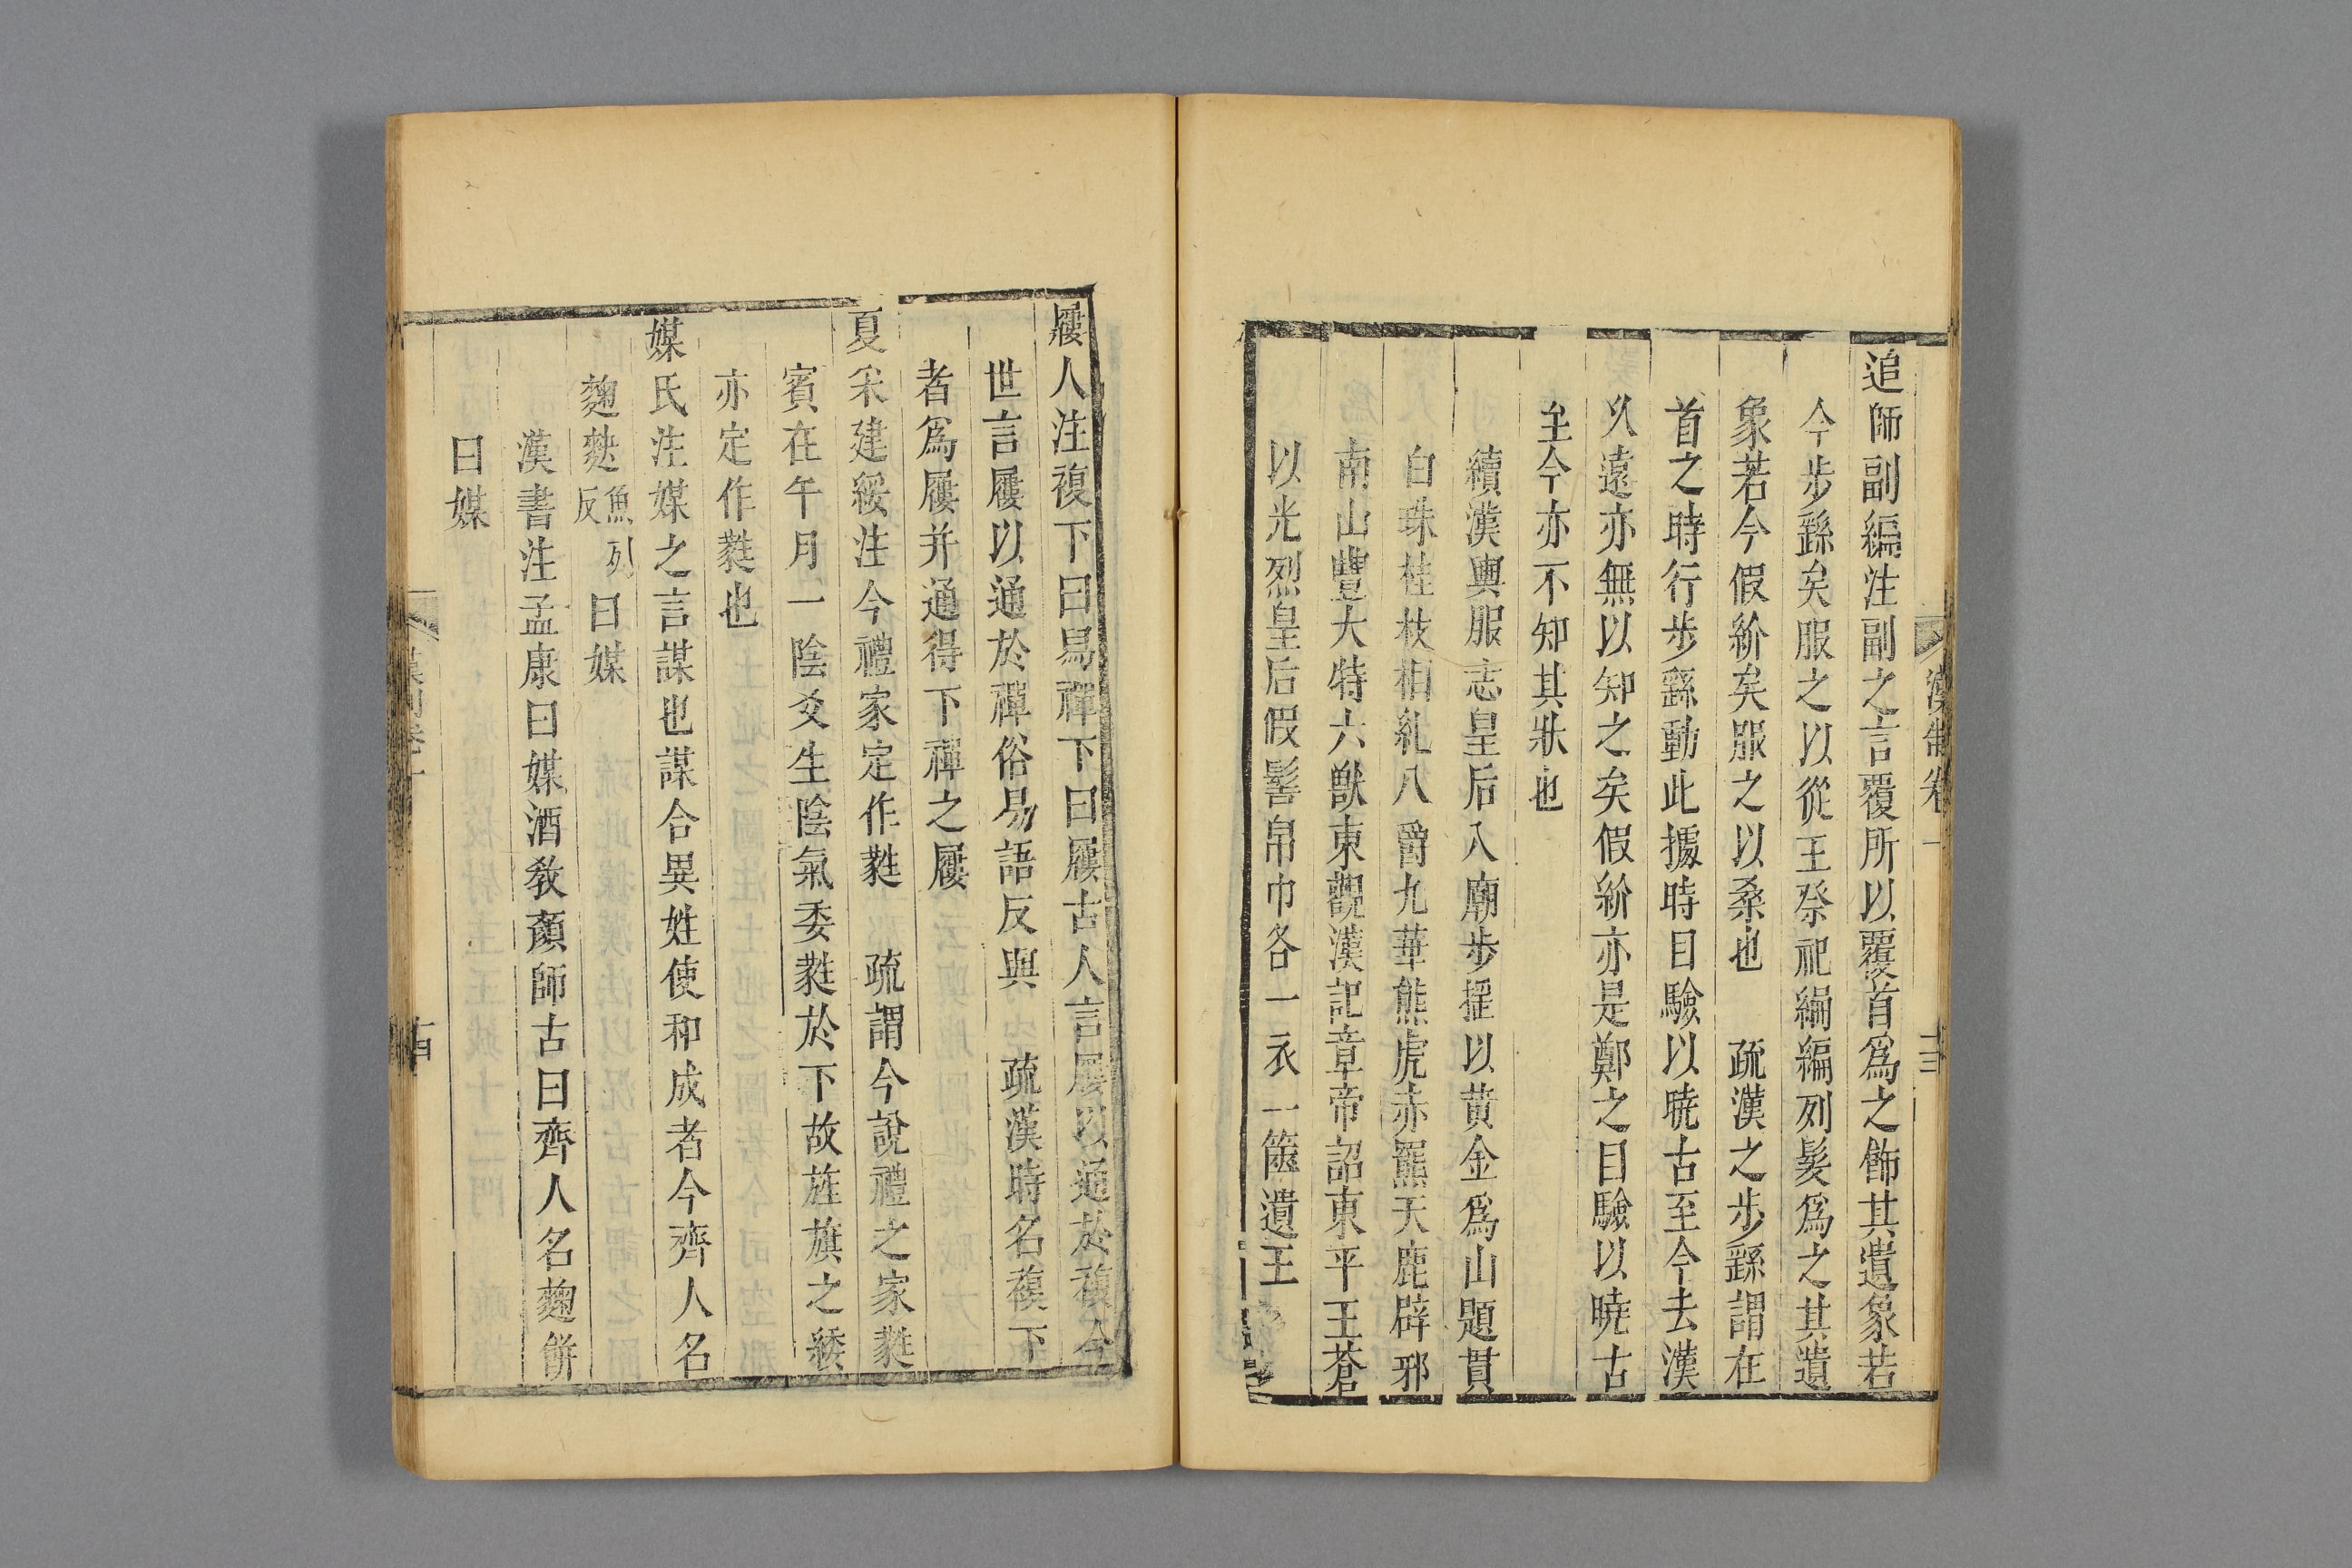 漢制卷一
十三
追師副編注副之言覆所以覆首爲之飾其遺象若
今步繇矣服之以從王祭祀編編列髮爲之其遺
象若今假紒矣服之以桑也 疏漢之步繇謂在
首之時行步繇動此據時目驗以曉古至今去漢
久遠亦無以知之矣假紒亦是鄭之目驗以曉古
至今亦不知其狀也
續漢輿服志皇后入廟步摇以黄金爲山題貫
白珠桂枝相糺八爵九華熊虎赤羆天鹿辟邪
南山豐大特六獸東觀漢記章帝詔東平王蒼
以光烈皇后假髻帛巾各一衣一篋遺王
屨人注複下曰舄禪下曰屨古人言屨以通於複今
世言屨以通於禪俗易語反與 疏漢時名複下
者爲屨并通得下禪之屨
夏采建綏注今禮家定作蕤 疏謂今説禮之家蕤
賓在午月一陰爻生陰氣委蕤於下故旌旗之緌
亦定作蕤也
媒氏注媒之言謀也謀合異姓使和成者今齊人名
麴䴷魚列反曰媒
漢書注孟康曰媒酒敎顔師古曰齊人名麴餅
曰媒
十四